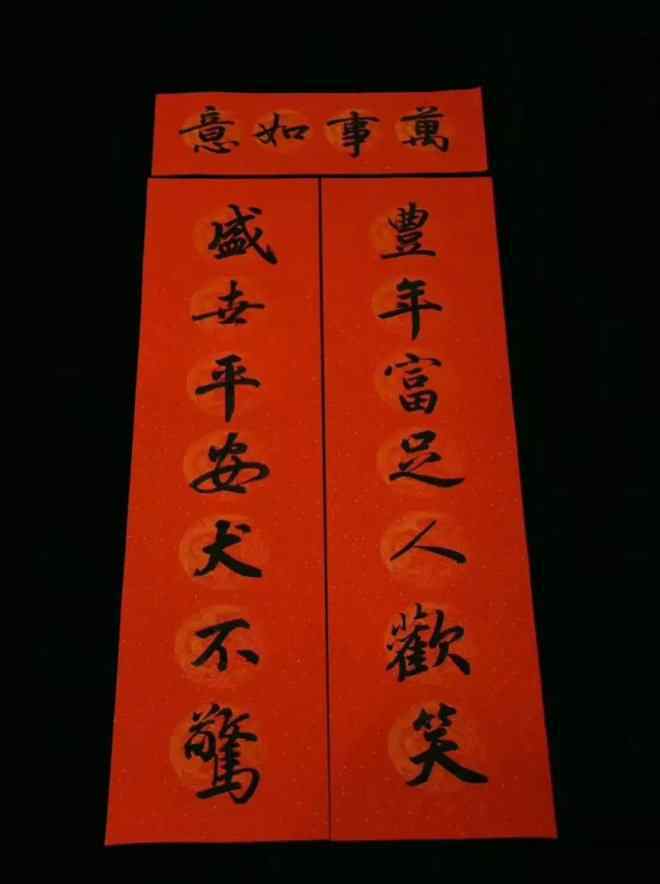 萬事如意
豐年富足人歡笑
盛世平安犬不驚